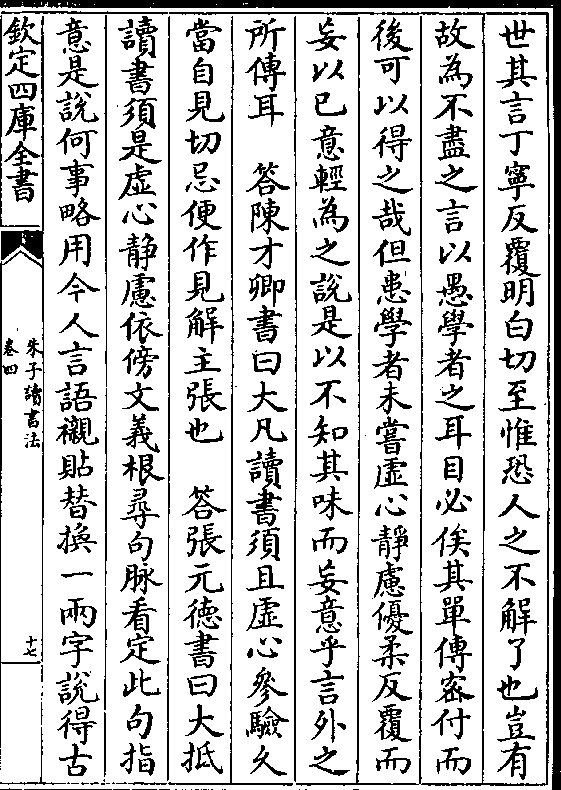 世其言丁寧反覆明白切至惟恐人之不解了也豈有
故為不盡之言以愚學者之耳目必俟其單傳宻付而
後可以得之哉但患學者未嘗虛心靜慮優柔反覆而
妄以已意輕為之說是以不知其味而妄意乎言外之
所傳耳　答陳才卿書曰大凡讀書須且虛心參驗久
當自見切忌便作見解主張也　答張元德書曰大抵
讀書須是虛心静慮依傍文義根尋句脉看定此句指
意是說何事略用今人言語襯貼替換一兩字說得古
欽定四庫全書
朱子讀書法
卷四
十七